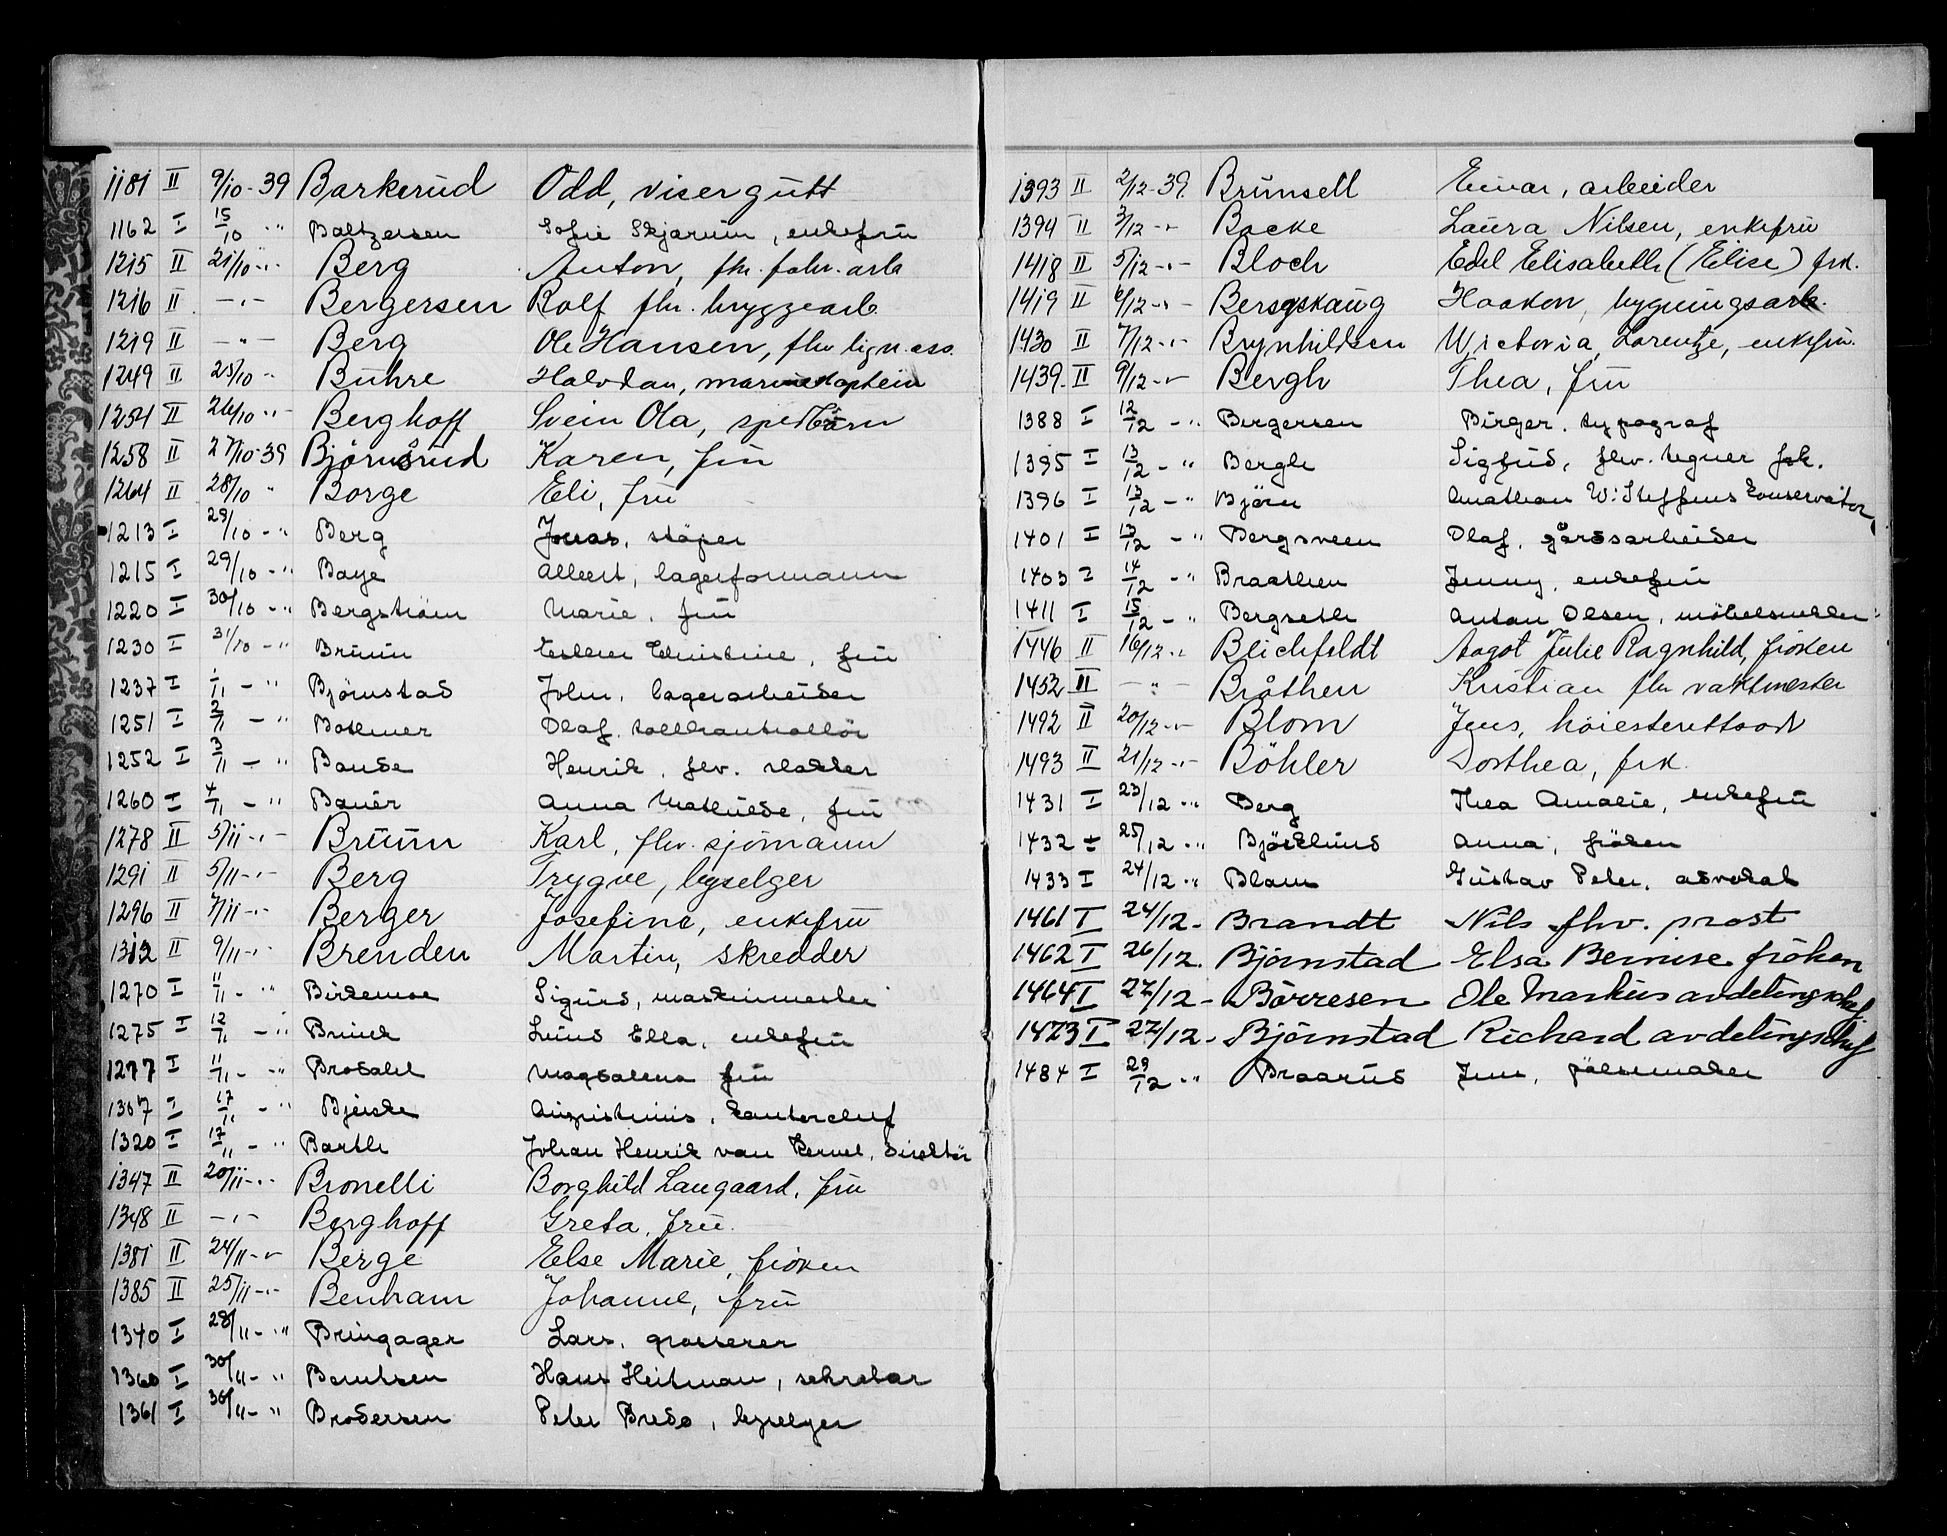 1181 II 9/10-39 Barkerud Odd, visergutt
1162 I 15/10 -"- Baltzersen Sofie Skjarum, enkefru
1215 II 21/10 -"- Berg Anton, fhv. fabr. arb
1216 II -"- Bergersen Rolf fhv. bryggearb.
1219 II -"- Berg Ole Hansen, fhv lign. ass.
1249 II 25/10 -"- Buhre Halvdan, marinekaptein
1254 II 26/10 -"- Berghoff Svein Ola, spedbarn
1258 II 27/10-39 Bjørnsrud Karen, fru
1264 II 28/10 " Borge Eli, fru
1213 I 28/10 -" Berg Jonas, støper
1215 I 29/10 -" Baye Albert, lagerformann
1220 I 30/10 -" Bergstrøm Marie, fru
1230 I 31/10 -" Bruun Esther Christine, fru
1237 I 1/11 -" Bjørnstad John, lagerarbeider
1251 I 2/11 -" Bothner Olaf, tollkontrollør
1252 I 3/11 -" Bonde Henrik, fhv. slakter
1260 I 4/11 -" Bauer Anna Mathilde, fru
1278 II 5/11 -"- Bruun Karl, fhv. sjømann
1291 II 5/11 -"- Berg Trygve, byselger
1296 II 7/11 -"- Berger Josefine, enkefru
1312 II 9/11 -"- Brenden Martin, skredder
1270 I 11/11 -" Birkemoe Sigurd, maskinmester
1275 I 12/11 -" Brinck Ella, enkefru
1277 I 11/11 -" Brodahl Magdalena fru
1307 I 17/11 -" Bjercke Augustinius, kontorchef
1320 I 17/11 -" Barth Johan Henrik van direktør
1347 II 20/11 -"- Bronelli Borghild Langaard, fru
1348 II -"- Berghoff Greta, fru.
1381 II 24/11 -"- Berge Else Marie, frøken
1385 II 25/11 -"- Benham Johanne, fru
1340 I 28/11 -" Bringager Lars, grosserer
1360 I 30/11 -" Berntsen Hans Heitman, sekretær
1361 I 30/11 -" Brodersen Peter Bredo, byselger
1393 II 2/12-39. Brunsell Einar, arbeider
1394 II 3/12 -"- Backe Laura Nilsen, enkefru
1418 II 5/12 -"- Bloch Edel Elisabeth (Elise) frk.
1419 II 6/12 -"- Bergskaug Haakon, bygningsarb.
1430 II 7/12 -"- Brynhildsen Victoria Lorentze, enkefru.
1439. II 9/12 -"- Bergh Thea, fru
1388 I 12/12 -" Bergersen Birger, typograf
1395 I 13/12 -" Bergh Sigfus, fhv. tegner
1396 I 13/12 -" Bjørn Jonathan W. Steffens konservator
1401 I 13/12 -" Bergsveen Olaf, gårdsarbeider
1403 I 14/12 -" Braathen Jenny, enkefru
1411 I 15/12 -" Bergseth Anton Olsen, møbelsnekker
1446 II 16/12 -"- Blichfeldt Aagot Julie Ragnhild, frøken
1452 II -"- Bråthen Kristian fhv vaktmester
1492 II 20/12 -"- Blom Jens, høiesterettsadv
1493 II 21/12 -"- Böhler Dorthea, frk.
1431 I 23/12 -" Berg Thea Amalie, enkefru
1432 I 25/12 -" Bjørklund Anna, frøken
1433 I 24/12 -" Blom Gustav Peter, advokat
1461 I 24/12- Brandt Nils fhv. prost
1462 I 26/12. Bjørnstad Elsa Bernise frøken
1464 I 27/12- Børresen Ole Markus avdelingschef.
1473 I 27/12- Bjørnstad Richard avdelingschef
1484 I 29/12 -" Braarud Jens, pølsemaker